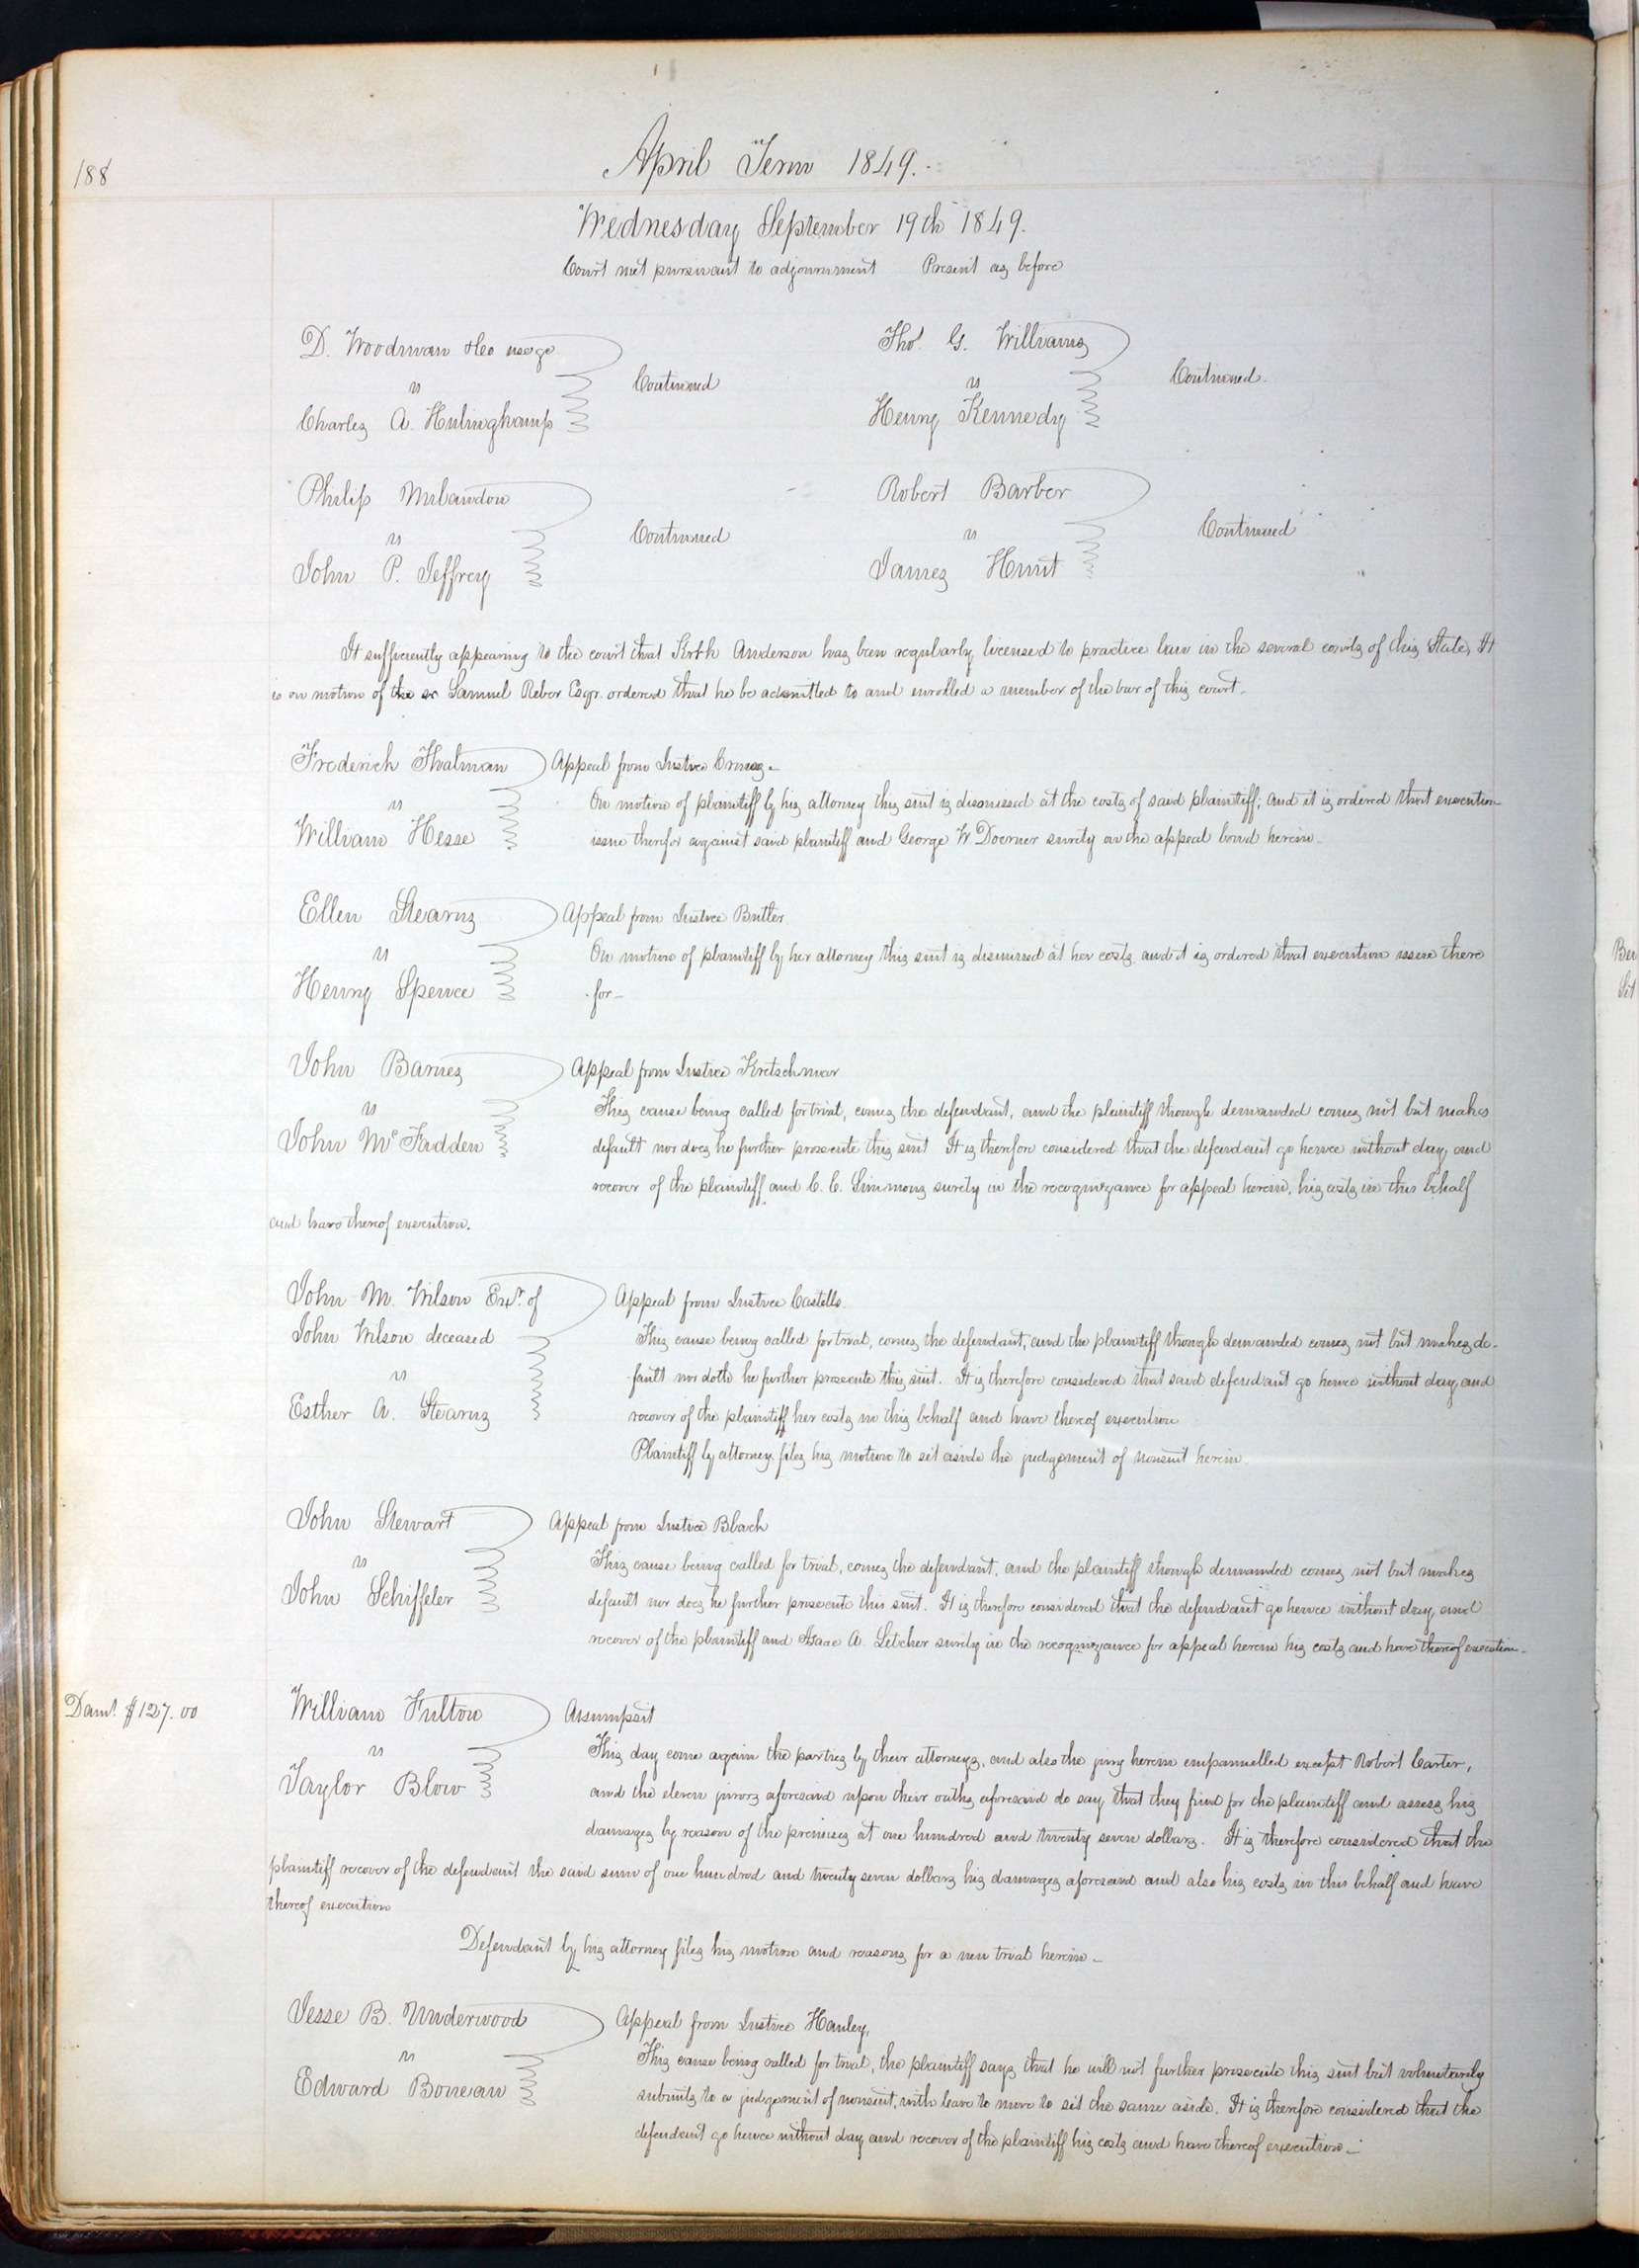 188
April Term 1849.
Wednesday September 19th 1849.
Court met pursuant to adjournment Present as before
D. Woodman to use
vs
Charles A.
Continued
Thos. G. Williams
vs
Henry Kennedy
Continued
Philip
vs
John P. Jeffrey
Continued
Robert Barber
vs
James Hunt
Continued
It sufficiently appearing to the court that Anderson has been regularly licensed to practice law in the several courts of this State, It
is on motion of Samuel Reber Esqr. ordered that he be admitted to and enrolled a member of the bar of this court.
Frederick Thalman
vs
William Hesse
Appeal from Justice
On motion of plaintiff by his attorney this suit is dismissed at the costs of said plaintiff; and it is ordered that execution
issue therefor against said plaintiff and George W Doerner surety on the appeal bond herein.
Ellen Stearns
vs
Henry Spence
Appeal from Justice Butler
On motion of plaintiff by her attorney this suit is dismissed at her costs, and it is ordered that execution issue there
for
John Barnes
vs
John McFadden
Appeal from Justice Kretschmar
This cause being called for trial, comes the defendant, and the plaintiff though demanded comes not but makes
default nor does he further prosecute this suit It is therefore considered that the defendant go hence without day, and
recover of the plaintiff and C. C. Simmons surety in the recognizance for appeal herein, his costs in this behalf
and have thereof execution.
John M. Wilson Exr. of
John Wilson deceased
vs
Esther A. Stearns
Appeal from Justice Castello
This cause being called for trial, comes the defendant, and the plaintiff though demanded comes not but makes de-
fault nor doth he further prosecute this suit. It is therefore considered that said defendant go hence without day, and
recover of the plaintiff her costs in this behalf and have thereof execution
Plaintiff by attorney files his motion to set aside the judgement of nonsuit herein
John Stewart
vs
John Schiffeler
Appeal from Justice Black
This cause being called for trial, comes the defendant, and the plaintiff though demanded comes not but makes
default nor does he further prosecute this suit. It is therefore considered that the defendant go hence without day, and
recover of the plaintiff and Isaac A. Letcher surety in the recognizance for appeal herein his costs and have thereof execution.
Dams. $127.00
William Fulton
vs
Taylor Blow
Assumpsit
This day come again the parties by their attorneys, and also the jury herein empannelled except Robert Carter,
and the eleven jurors aforesaid upon their oaths aforesaid do say that they find for the plaintiff and assess his
damages by reason of the premises at one hundred and twenty seven dollars. It is therefore considered that the
plaintiff recover of the defendant the said sum of one hundred and twenty seven dollars his damages aforesaid and also his costs in this behalf and have
thereof execution
Defendant by his attorney files his motion and reasons for a new trial herein
Jesse B. Underwood
vs
Edward
Appeal from Justice Hanley,
This cause being called for trial, the plaintiff says that he will not further prosecute this suit but voluntarily
submits to a judgement of nonsuit, with leave to move to set the same aside. It is therefore considered that the
defendant go hence without day and recover of the plaintiff his costs and have thereof execution.